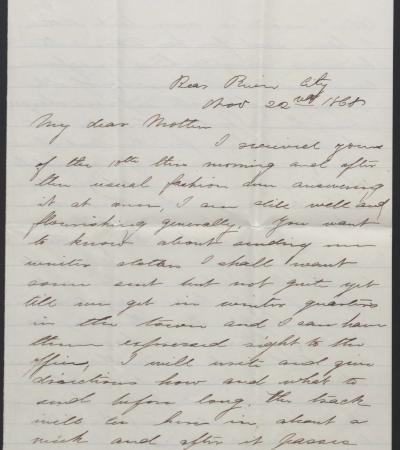 Bear River City
Nov 22nd 1868
My dear Mother
I received yours
of the 10th this morning and after
the usual fashion am answering
it at once, I am still well and
flourishing generally. You want
to know about sending me
winter clothes I shall want
some sent but not quite yet
till we get in winter quarters
in the town and I can have
them expressed right to the
office, I will write and give
directions how and what to
send before long. The track
will be here in about a
week and after it passes